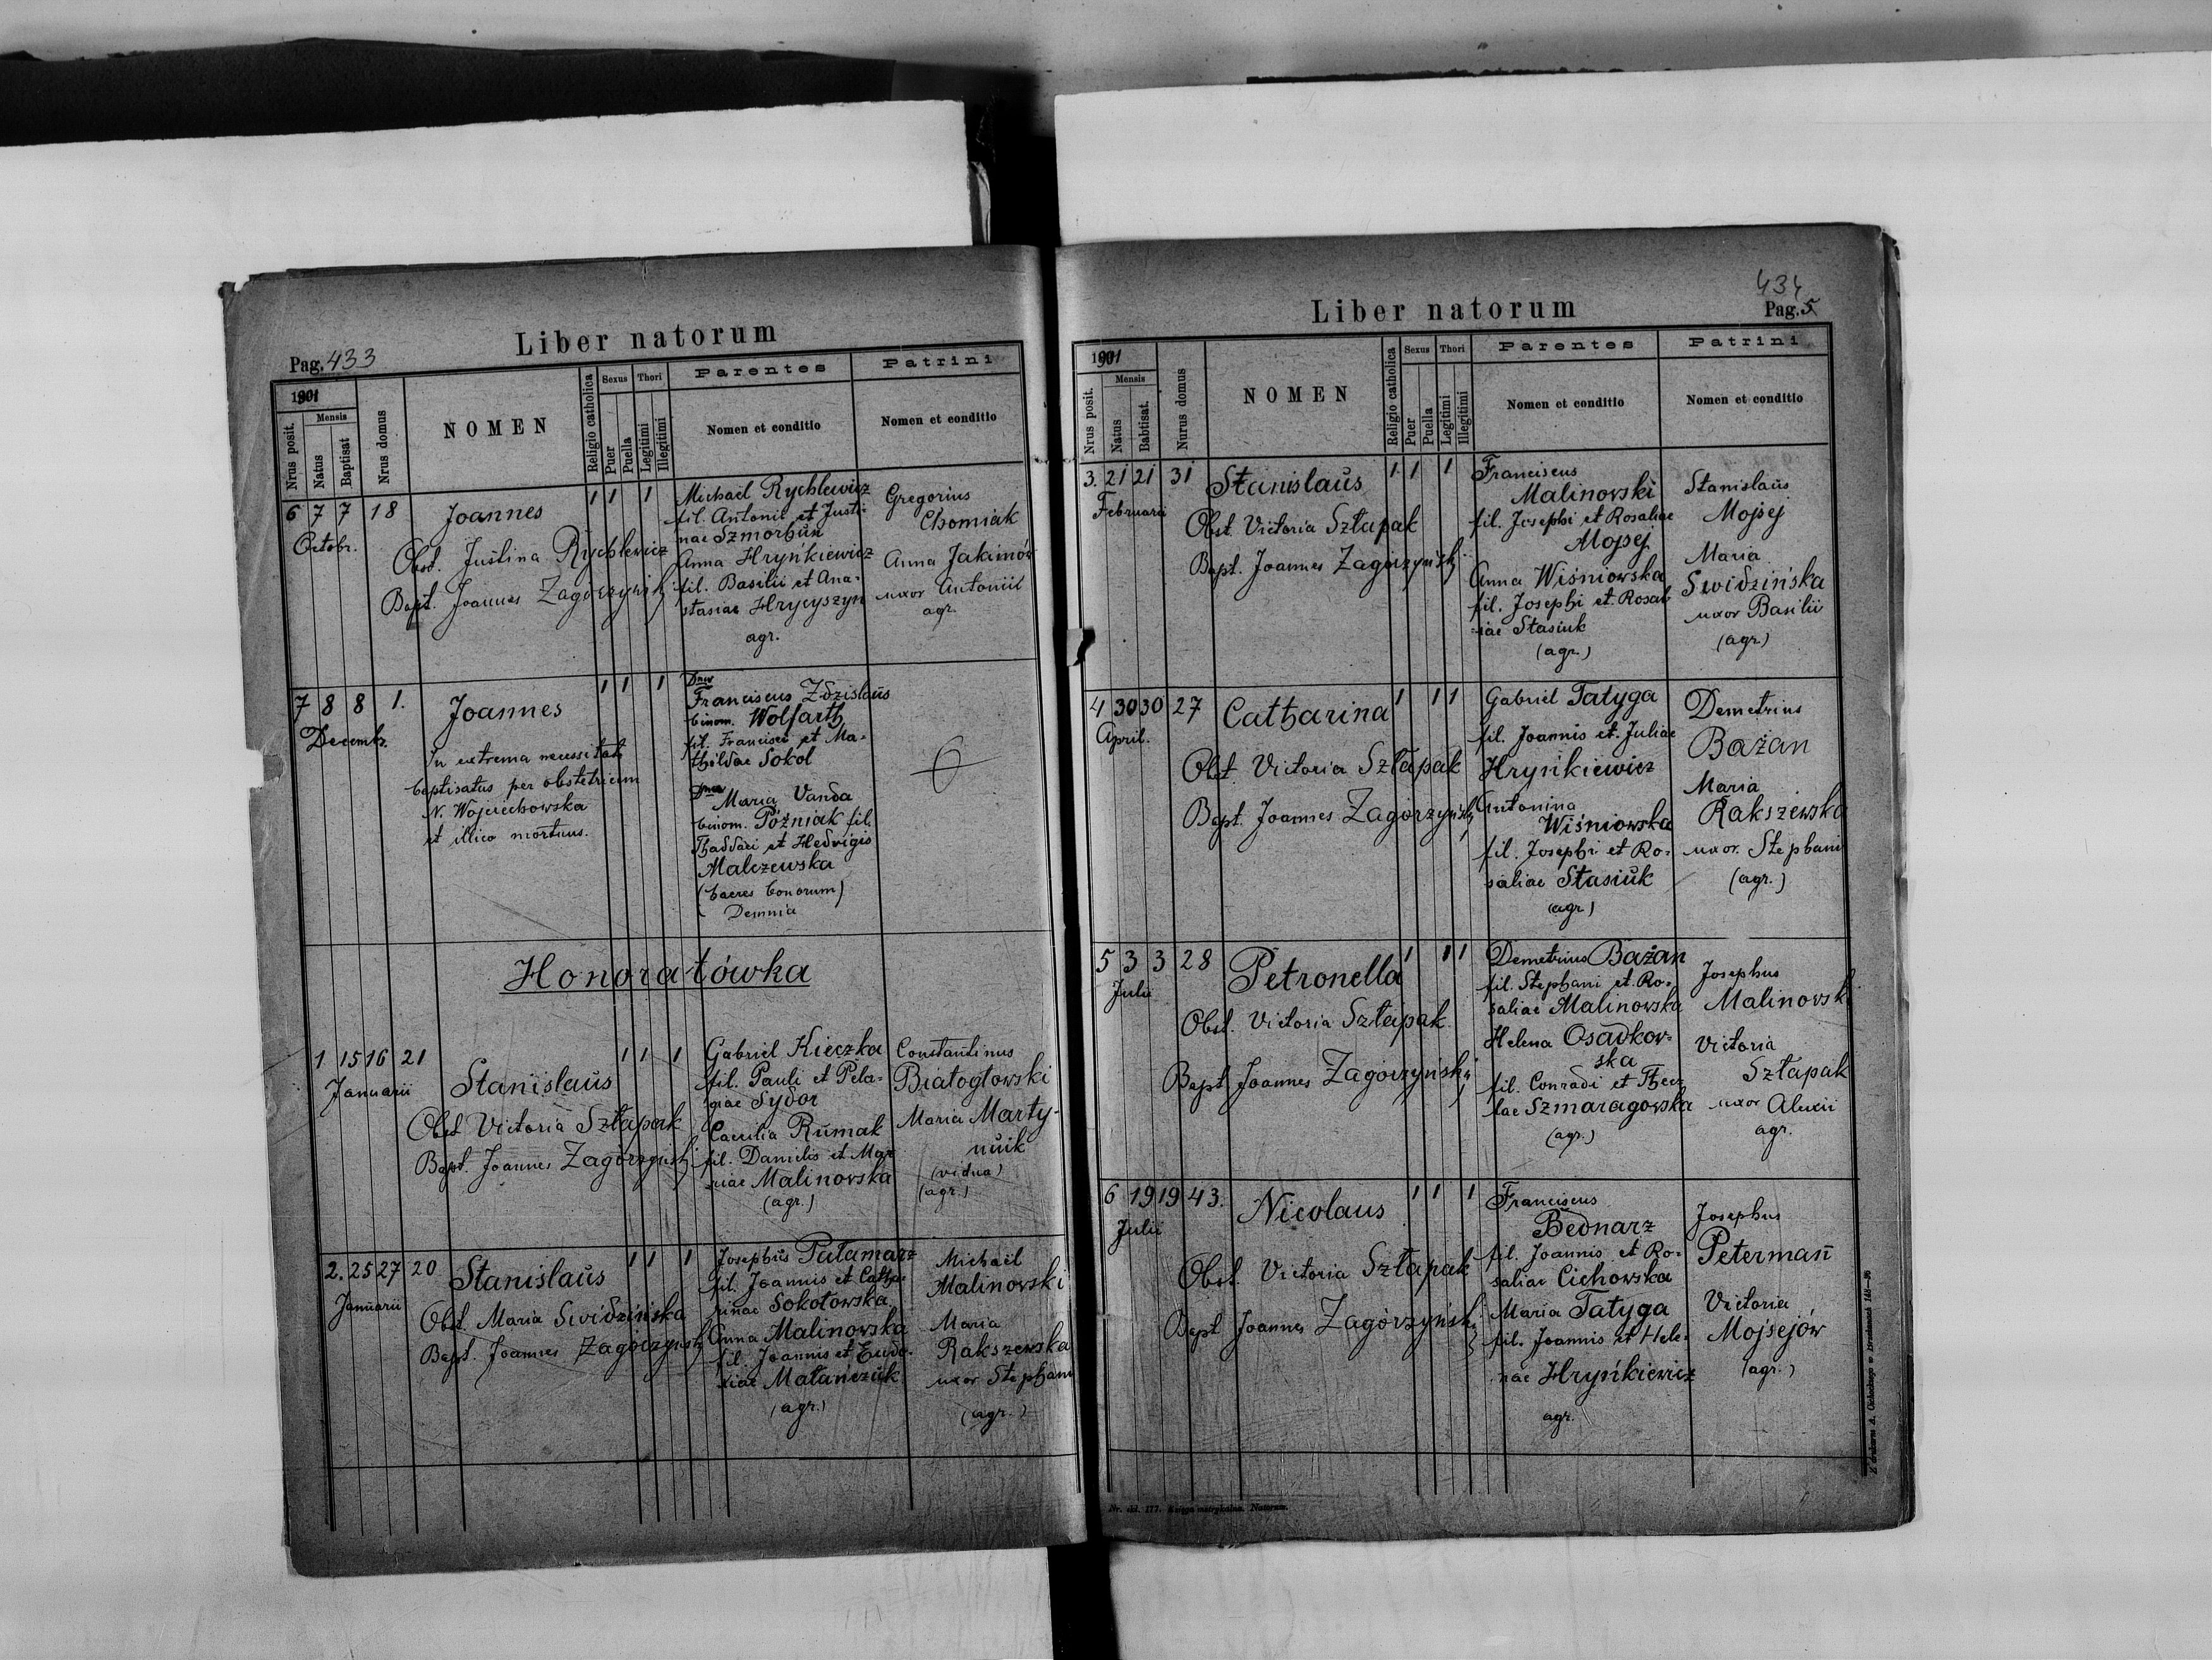 Pag. 433
Liber natorum
1901
Nrus posit.
Mensis
Natus
Baptisat
Nrus domus
NOMEN
Religio catholica
Sexus
Puer
Puella
Thori
Legitimi
Illegitimi
Parentes
Nomen et conditio
Patrini
Nomen et conditio
6 7 7 18 Joannes 1 1 1
Octobr.
Obst. Justina Rychlewicz
Bapt. Joannes Zagórzyński
Michael Rychlewicz
fil. Antonii et Justi-
nae Szmorhun
Anna Hryńkiewicz
fil. Basilii et Ana-
stasiae Hrycyszyn
agr.
Gregorius
Chomiak
Anna Jakimów
uxor Antonii
agr.
7 8 8 1. Joannes 1 1 1
Decemb.
In extrema necessitate
baptisatus per obstetricem
N. Wojciechowska
et illico mortuus.
Dnus
Franciscus Zdzislaus
binom. Wolfarth
fil. Francisci et Ma-
thildae Sokol
Dna
Maria Vanda
binom. Pózniak fil.
Thaddaei et Hedvigis
Malczewska
(haeres bonorum)
Demnia
Honoratówka
1 15 16 21 Stanislaus 1 1 1
Januarii
Obst Victoria Sztapak
Bapt. Joannes Zagórzyński
Gabriel Kieczka
fil. Pauli et Pela-
giae Sydor
Caecilia Rumak
fil. Danielis et Mar
riae Malinovska
(agr.)
Constantinus
Białogłowski
Maria Marty-
nuik
(vidua)
(agr.)
2. 25 27 20 Stanislaus 1 1 1
Januarii
Obst Maria Swidzińska
Bapt. Joannes Zagórzyński
Josephus Patamarz
fil. Joannis et Catha-
rinae Sokołowska
Anna Malinowska
fil. Joannis et Eudo-
xiae Małańczuk
(agr.)
Michael
Malinovski
Maria
Rakszewska
uxor Stephani
(agr.)
434
Liber natorum
Pag. 5
1901
Nrus posit.
Mensis
Natus
Babtisat.
Nurus domus
NOMEN
Religio catholica
Sexus
Puer
Puella
Thori
Legitimi
Illegitimi
Parentes
Nomen et conditio
Patrini
Nomen et conditio
3. 21 21 31 Stanislaus 1 1 1
Februarii
Obst. Victoria Sztapak
Bapt. Joannes Zagórzyński
Franciscus
Malinovski
fil. Josephi et Rosaliae
Mojsej
Anna Wiśniowska
fil. Josephi et Rosal
iae Stasiuk
(agr.)
Stanislaus
Mojsej
Maria
Swidzińska
uxor Basilii
(agr.)
4 30 30 27 Catharina 1 1 1
April.
Obst Victoria Sztapak
Bapt. Joannes Zagórzyński
Gabriel Tatyga
fil. Joannis et Juliae
Hryńkiewicz
Antonina
Wiśniowska
fil. Josephi et Ro-
saliae Stasiuk
(agr)
Demetrius
Bażan
Maria
Rakszewska
uxor. Stephani
(agr.)
5 3 3 28 Petronella 1 1 1
Julii
Obst. Victoria Sztapak
Bapt Joannes Zagórzyński
Demetrius Bażan
fil. Stephani et Ro-
saliae Malinowska
Helena Osadkow-
ska
fil. Conradi et Thec-
lae Szmaragowska
(agr.)
Josephus
Malinovski
Victoria
Sztapak
uxor Alexii
agr.
6 19 19 43. Nicolaus 1 1 1
Julii
Obst. Victoria Sztapak
Bapt Joannes Zagórzyński
Franciscus
Bednarz
fil. Joannis et Ro-
saliae Cichowska
Maria Tatyga
fil. Joannis et Hele-
nae Hryńkiewicz
agr.
Josephus
Peterman
Victoria
Mojsejów
(agr.)